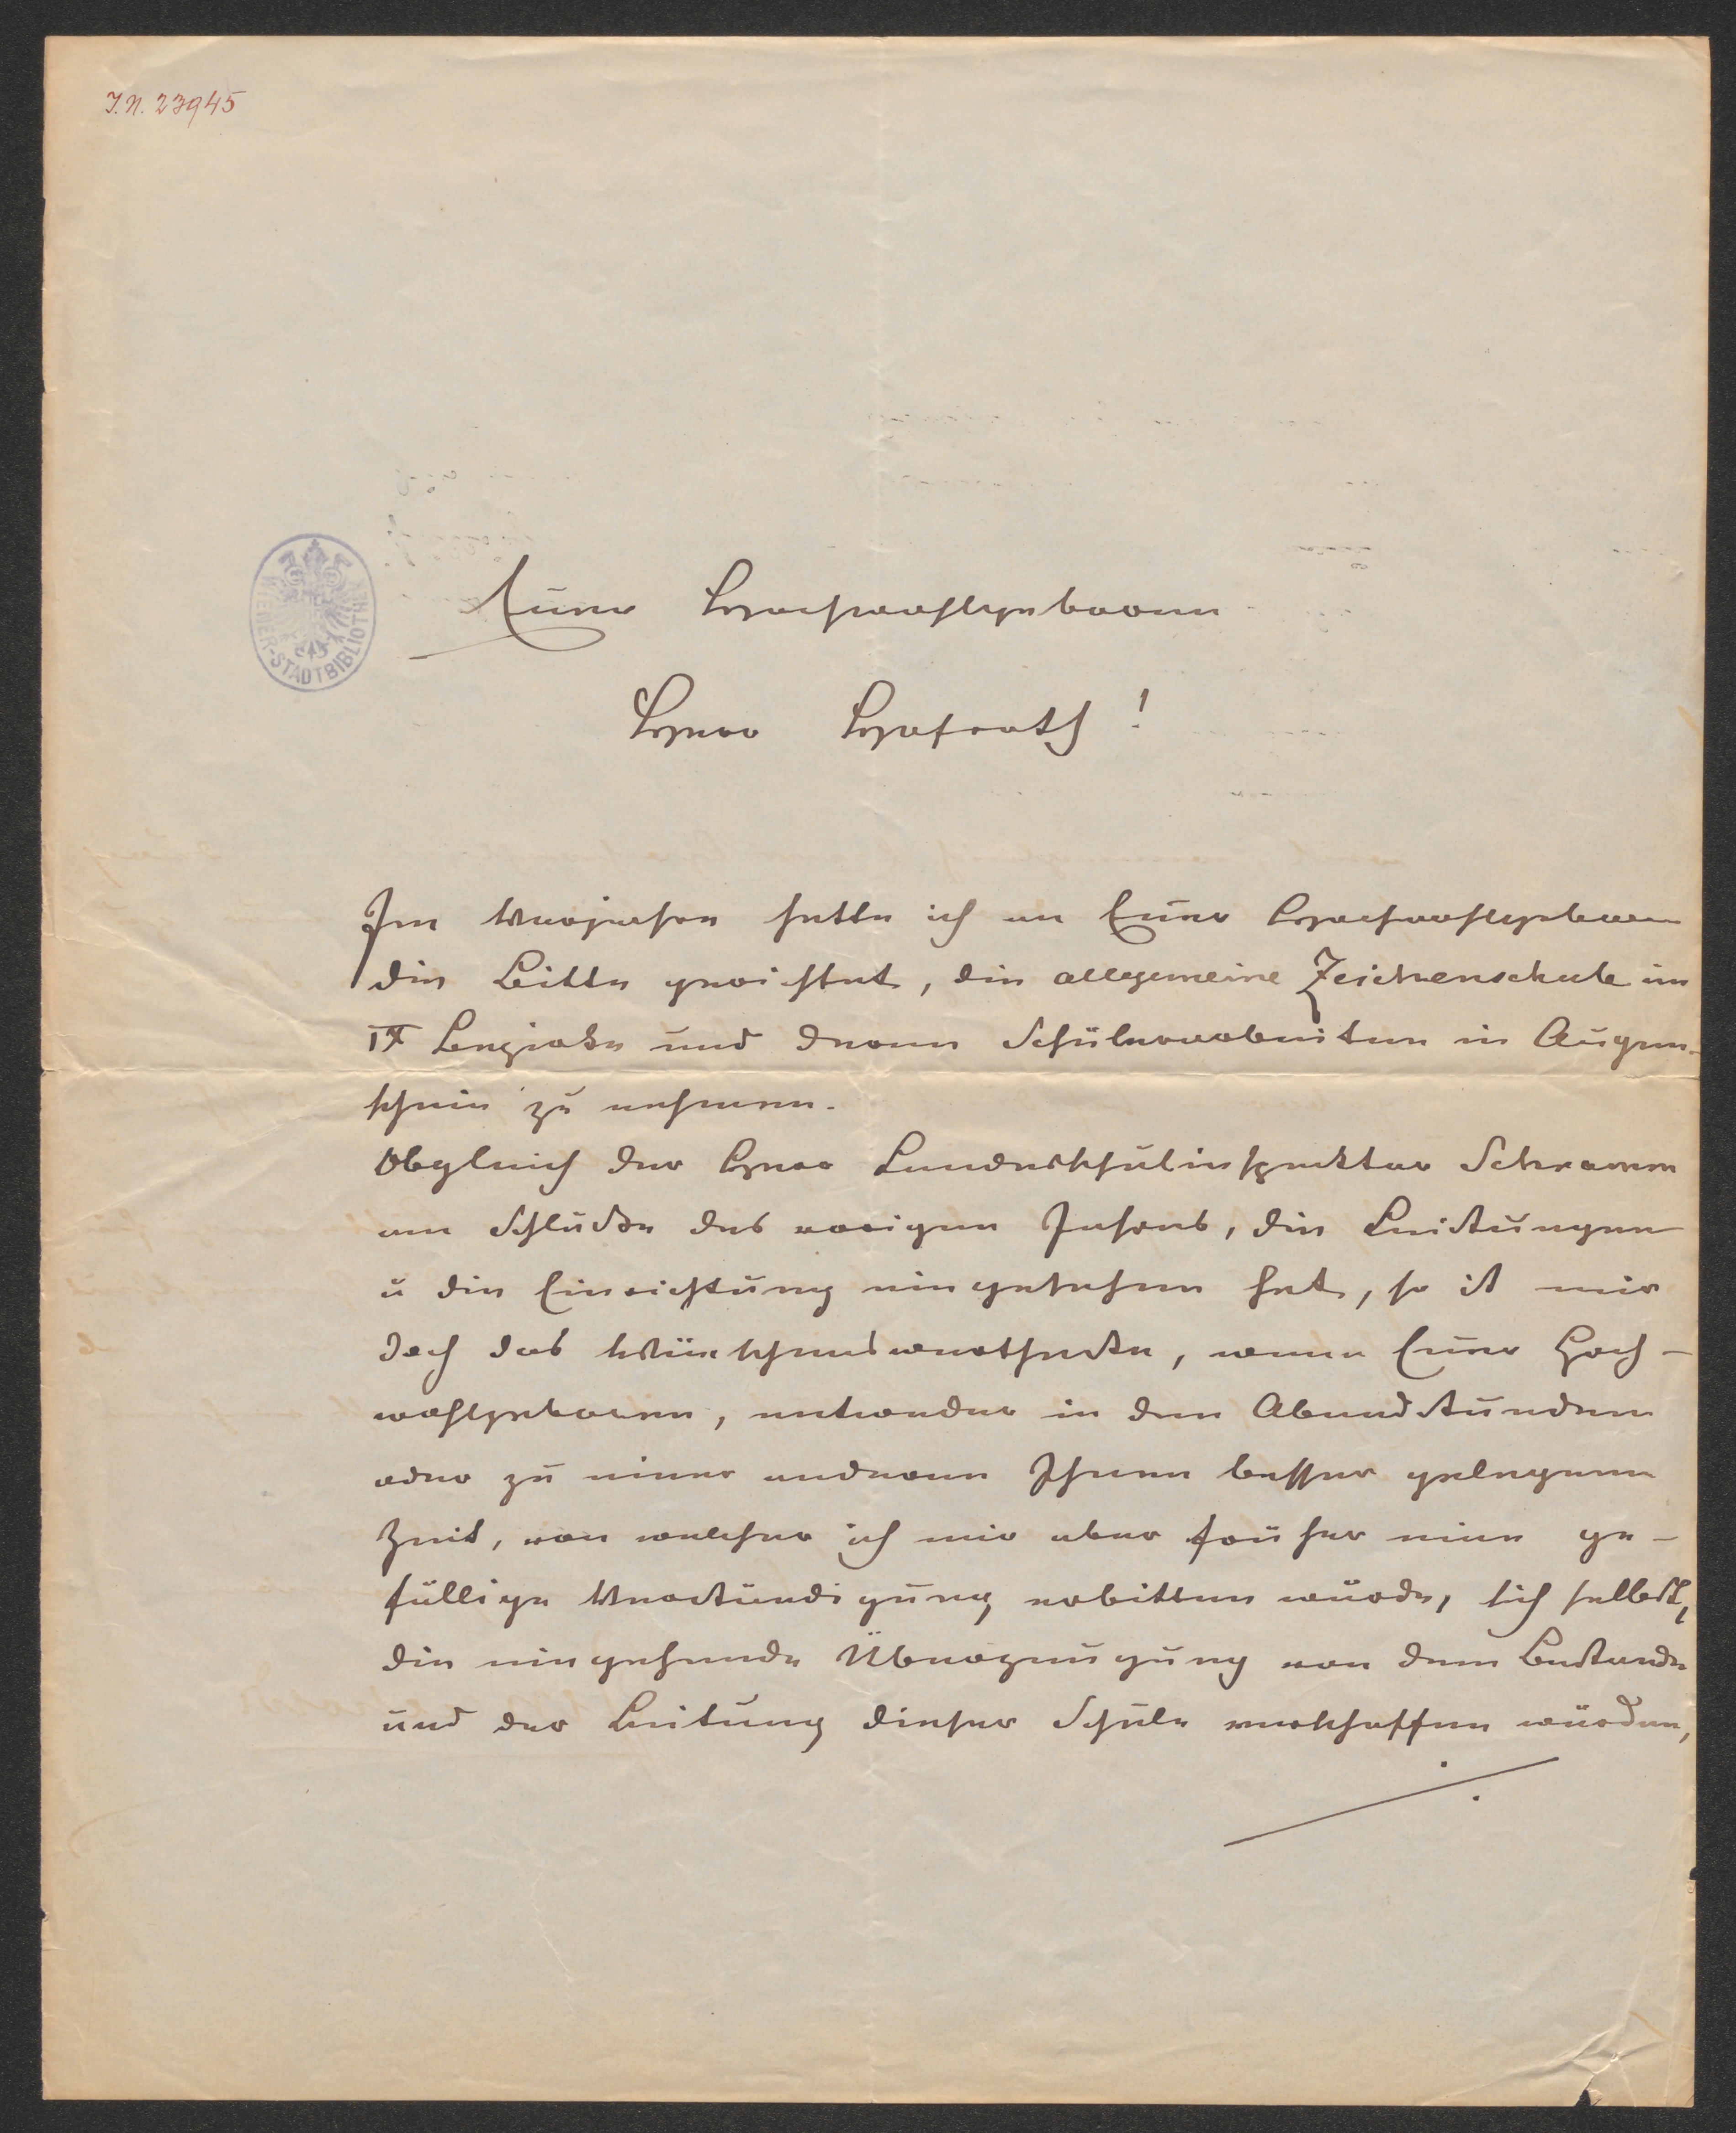 I.N. 23945
WIENER-STADTBIBLIOTHEK
Euer Hochwohlgeboren
Herr Hofrath!
Im Vorjahre hatte ich an Euer Hochwohlgeboren
die Bitte gerichtet, die allgemeine Zeichenschule im
IX Bezirke und deren Schülerarbeiten in Augen-
schein zu nehmen.
Obgleich der Herr Landesschulinspektor Schramm
am Schluße des vorigen Jahres, die Leistungen
u die Einrichtung eingesehen hat, so ist mir
doch das Wünschenswertheste, wenn Euer Hoch-
wohlgeboren, entweder in den Abendstunden
oder zu einer anderen Ihnen besser gelegenen
Zeit, von welcher ich mir aber früher eine ge-
fällige Verständigung erbitten würde, sich selbst,
die eingehende Überzeugung von dem Bestande
und der Leitung dieser Schule verschaffen würden,
./.